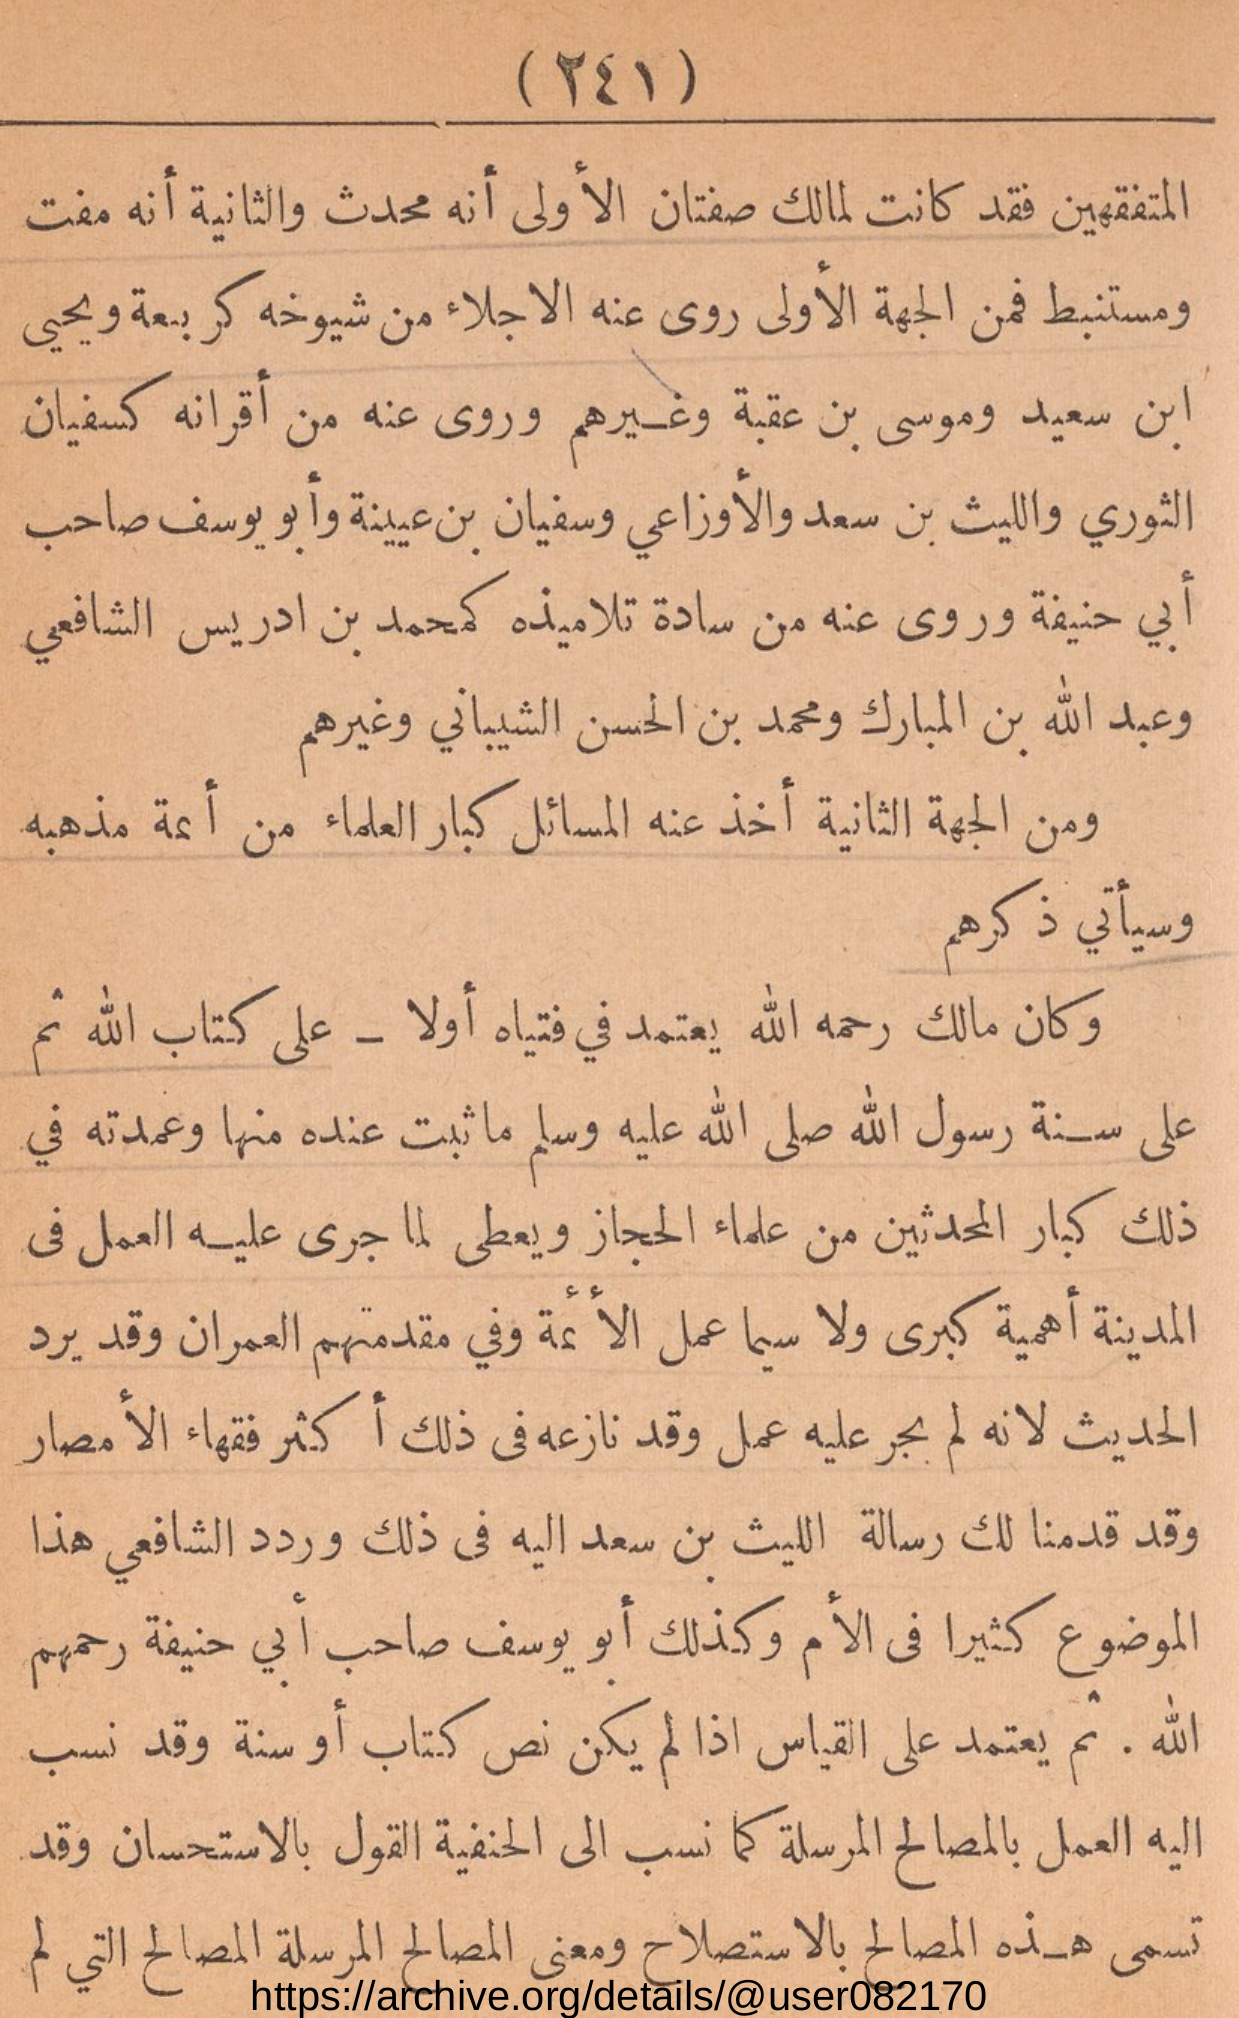 (٢٤١)
المتفقهين فقد كانت لمالك صفتان الأولى أنه محدث والثانية أنه مفت
ومستنبط فمن الجهة الأولى روى عنه الاجلاء من شيوخه كربيعة ويحيى
ابن سعيد وموسى بن عقبة وغيرهم وروى عنه من أقرانه كسفيان
الثوري والليث بن سعد والأوزاعي وسفيان بن عيينة وأبو يوسف صاحب
أبي حنيفة وروى عنه من سادة تلاميذه كمحمد بن ادريس الشافعي
وعبد الله بن المبارك ومحمد بن الحسن الشيباني وغيرهم
ومن الجهة الثانية أخذ عنه المسائل كبار العلماء من أئمة مذهبه
وسيأتي ذكرهم
وكان مالك رحمه الله يعتمد في فتياه أولا – على كتاب الله ثم
على سنة رسول الله صلى الله عليه وسلم ما ثبت عنده منها وعمدته في
ذلك كبار المحدثين من علماء الحجاز ويعطى لما جرى عليه العمل فى
المدينة أهمية كبرى ولا سيما عمل الأئمة وفي مقدمتهم العمران وقد يرد
الحديث لانه لم يجر عليه عمل وقد نازعه فى ذلك أكثر فقهاء الأمصار
وقد قدمنا لك رسالة الليث بن سعد اليه فى ذلك وردد الشافعي هذا
الموضوع كثيرا فى الأم وكذلك أبو يوسف صاحب أبي حنيفة رحمهم
الله . ثم يعتمد على القياس اذا لم يكن نص كتاب أو سنة وقد نسب
اليه العمل بالمصالح المرسلة كما نسب الى الحنفية القول بالاستحسان وقد
تسمى هذه المصالح بالاستصلاح ومعنى المصالح المرسلة المصالح التي لم
https://archive.org/details/@user082170